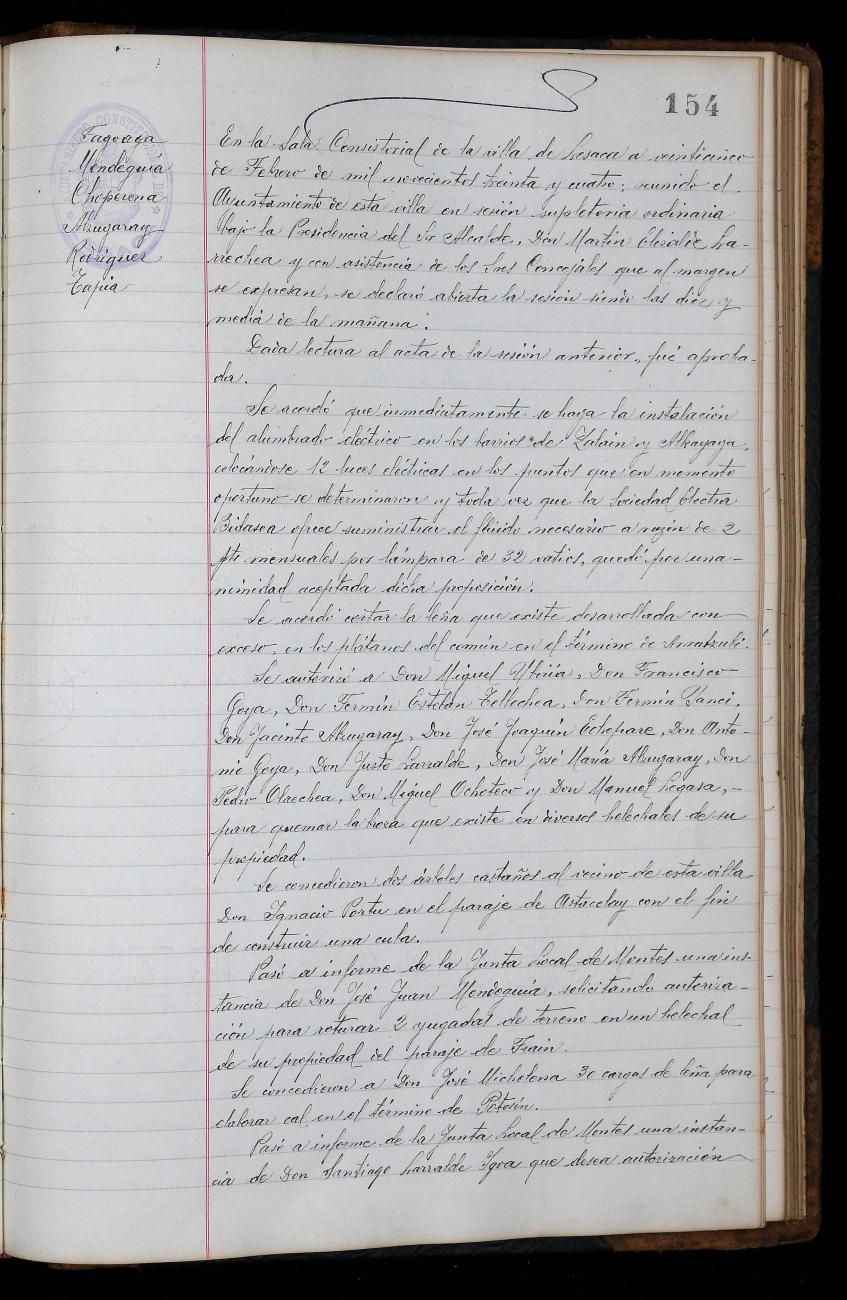 154
AYUNTAMIENTO CONSTITUCIONAL DE
Fagoaga
Mendeguia
Choperena
Alzugaray
Rodriguez
Tapia
En la Sala Consistorial de la villa de Lesaca a veinticinco
de Febrero de mil novecientos treinta y cuatro; reunido el
Ayuntamiento de esta villa en sesión supletoria ordinaria
bajo la Presidencia del Sr Alcalde, Don Martin Elizalde La-
rrechea y con asistencia de los Sres Concejales que al margen
se expresan, se declaró abierta la sesión siendo las diez y
media de la mañana.
Dada lectura al acta de la sesión anterior, fué aproba-
da.
Se acordó que inmediatamente se haga la instalación
del alumbrado eléctrico en los barrios de Zalain y Alkayaga,
colocándose 12 luces eléctricas en los puntos que en momento
oportuno se determinaron y toda vez que la Sociedad Electra
Bidasoa ofrece suministrar el flúido necesario a razón de 2
pts mensuales por lámpara de 32 vatios, quedó por una-
nimidad aceptada dicha proposición.
Se acordó cortar la leña que existe desarrollada con
exceso, en los plátanos del común en el término de Arratzubi.
Se autorizó a Don Miguel Yturria, Don Francisco
Goya, Don Fermín Esteban Tellechea, Don Fermín Yanci,
Don Jacinto Alzugaray, Don José Joaquin Echepare, Don Anto-
nio Goya, Don Justo Larralde, Don José María Alzugaray, Don
Pedro Olaechea, Don Miguel Ochoteco y Don Manuel Legasa,-
para quemar la broza que existe en diversos helechales de su
propiedad.
Se concedieron dos árboles castaños al vecino de esta villa
Don Ignacio Portu en el paraje de Astucelay con el fin
de construir una cuba.
Pasó a informe de la Junta Local de Montes una ins-
tancia de Don José Juan Mendeguia, solicitando autoriza-
ción para roturar 2 yugadas de terreno en un helechal
de su propiedad del paraje de Frain.
Se concedieron a Don José Michelena 30 cargas de leña para
elaborar cal en el término de Potosín.
Pasó a informe de la Junta Local de Montes una instan-
cia de Don Santiago Larralde Ygoa que desea autorización